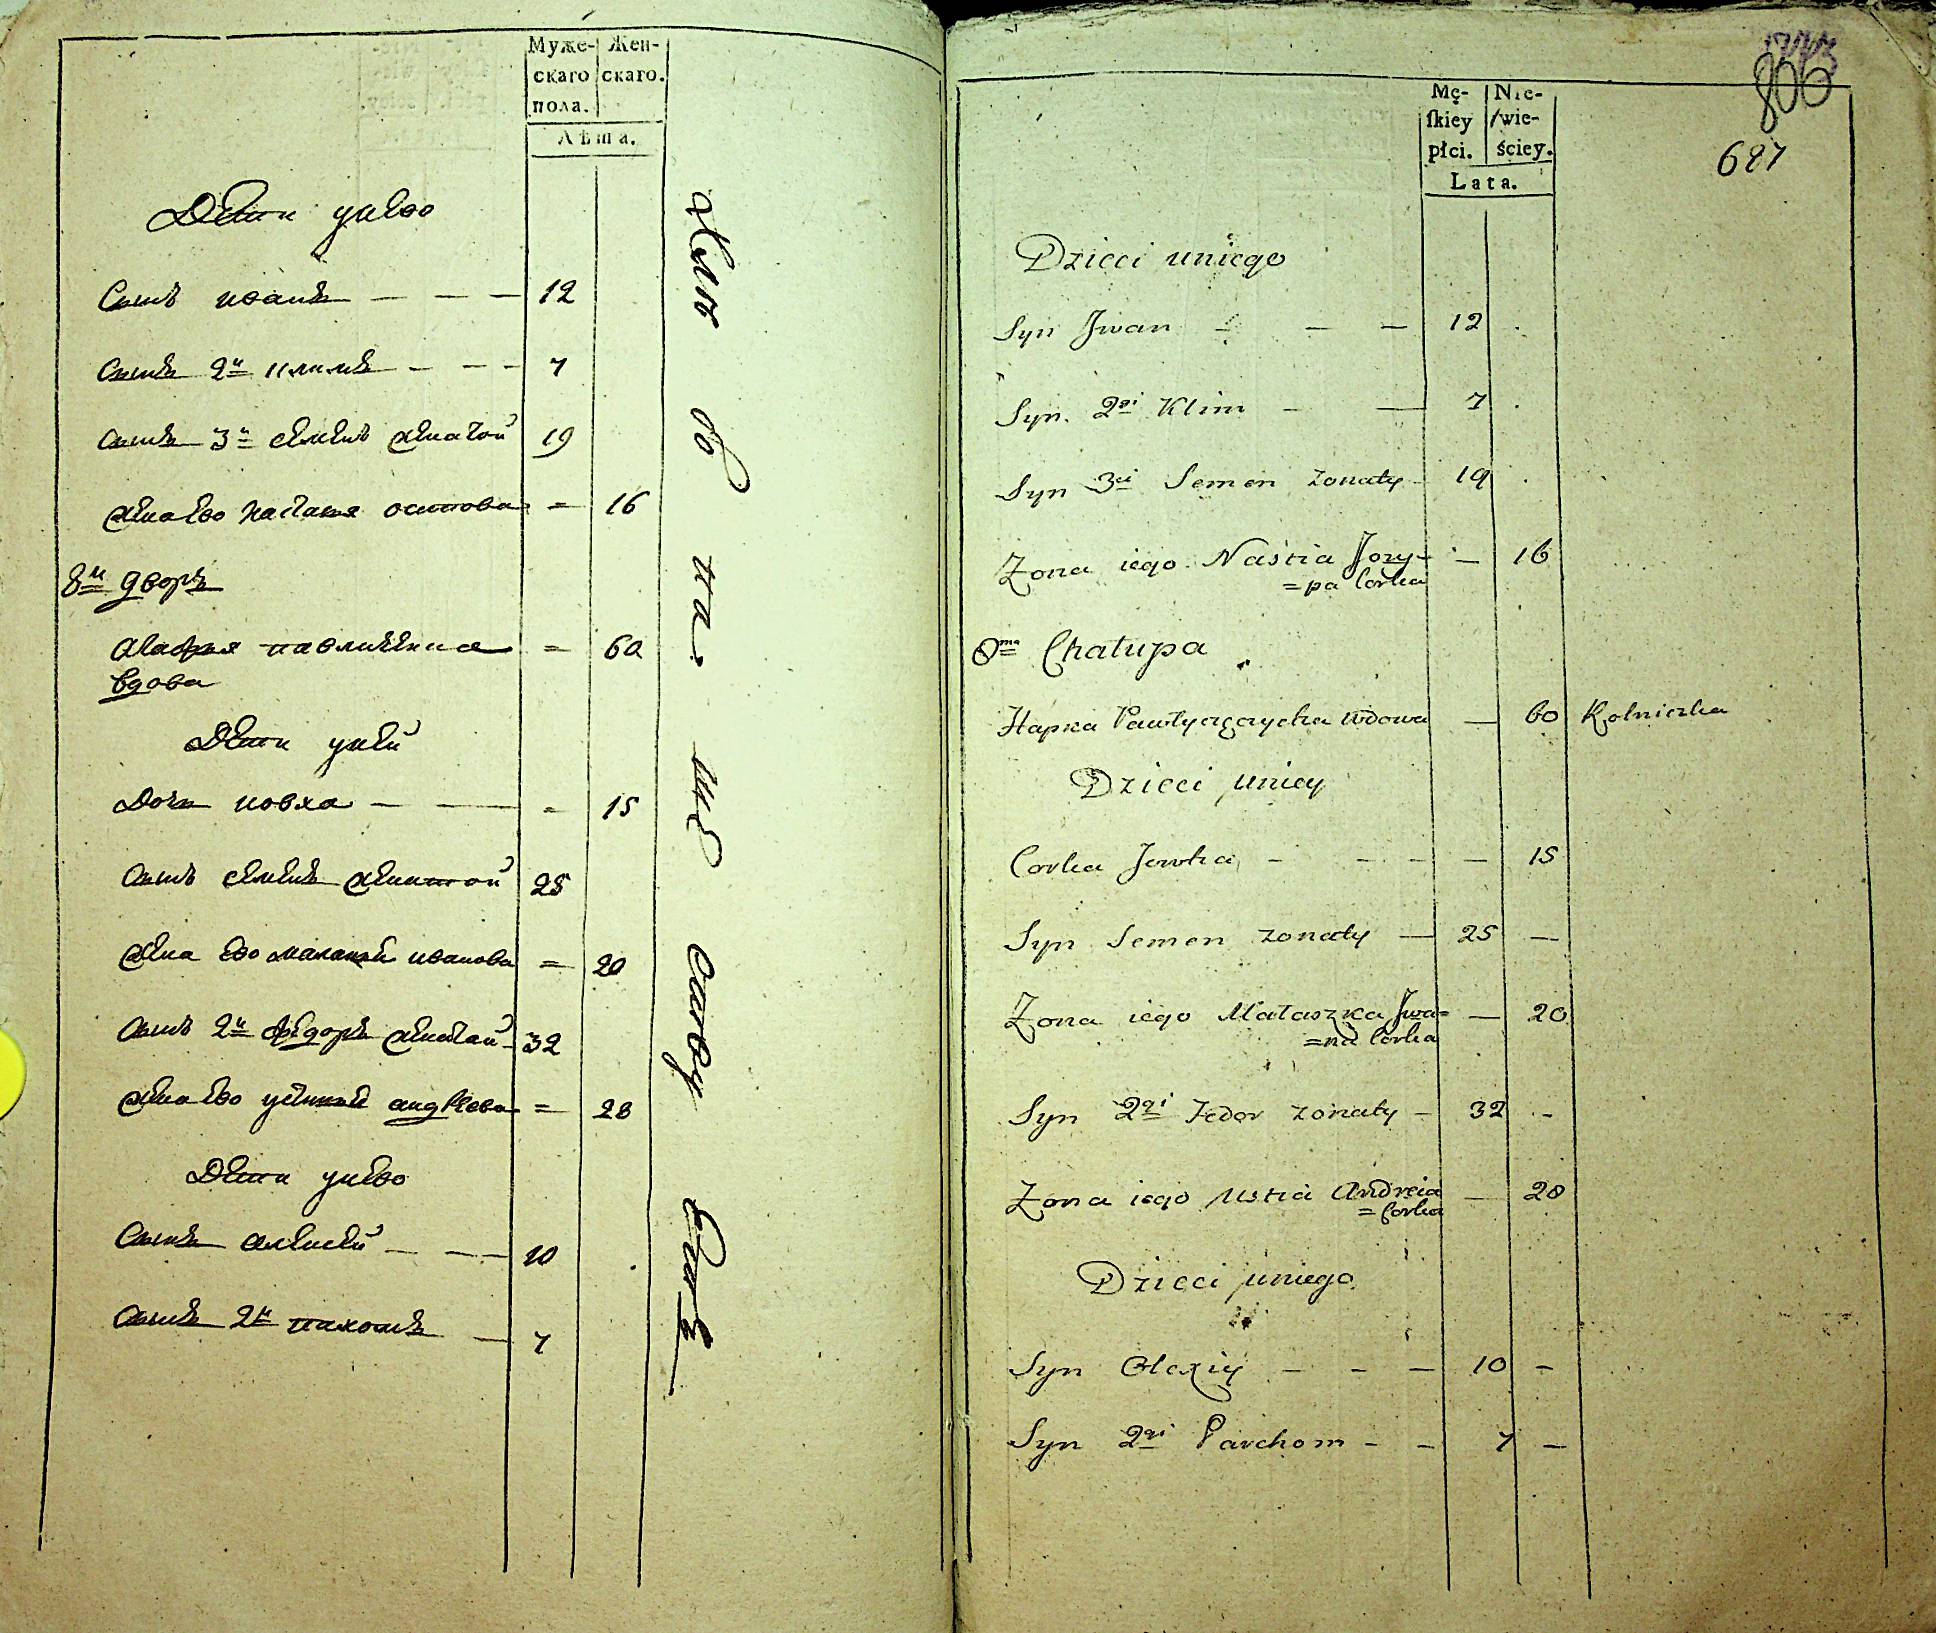 Муже- Жен-
скаго скаго.
пола.
Лѣта.
Дети унево
Сынъ иванъ — — — 12
сынъ 2й климъ — — — 7
сынъ 3й семенъ женатой 19
жена ево настася осипова = 16
8й дворъ
агафия павличкиха = 60
вдова
Дети уней
Дочь повха — — = 15
сынъ семенъ женатой 25
жена ево маланя иванова = 20
сынъ 2й федоръ женатой 32
жена ево устиня андреева = 28
Дети унево
сынъ алексей — — — 10
сынъ 2й пахомъ — 7
806
687
Mę- Nie-
ſkiey /wie-
płci. ściey.
Lata.
Dzieci uniego
Syn Jwan — — — 12
Syn. 2gi Klim — — 7
Syn 3ci Semen zonaty 19
Zona iego Nastia Jozy- — 16
=pa Corka
8ma Chatupa
Hapka wdowa — 60 Kolniczka
Dzieci uniey
Corka Jewka — — — — 15
Syn Semen zonaty — 25 —
Zona iego Małaszka Jwa= — 20
=na Corka
Syn 2gi Fedor zonaty — 32 —
Zona iego Ustia Andreia — 28
=Corka
Dzieci uniego
Syn Olexiy — — — 10 —
Syn 2gi Parchom — — 7 —